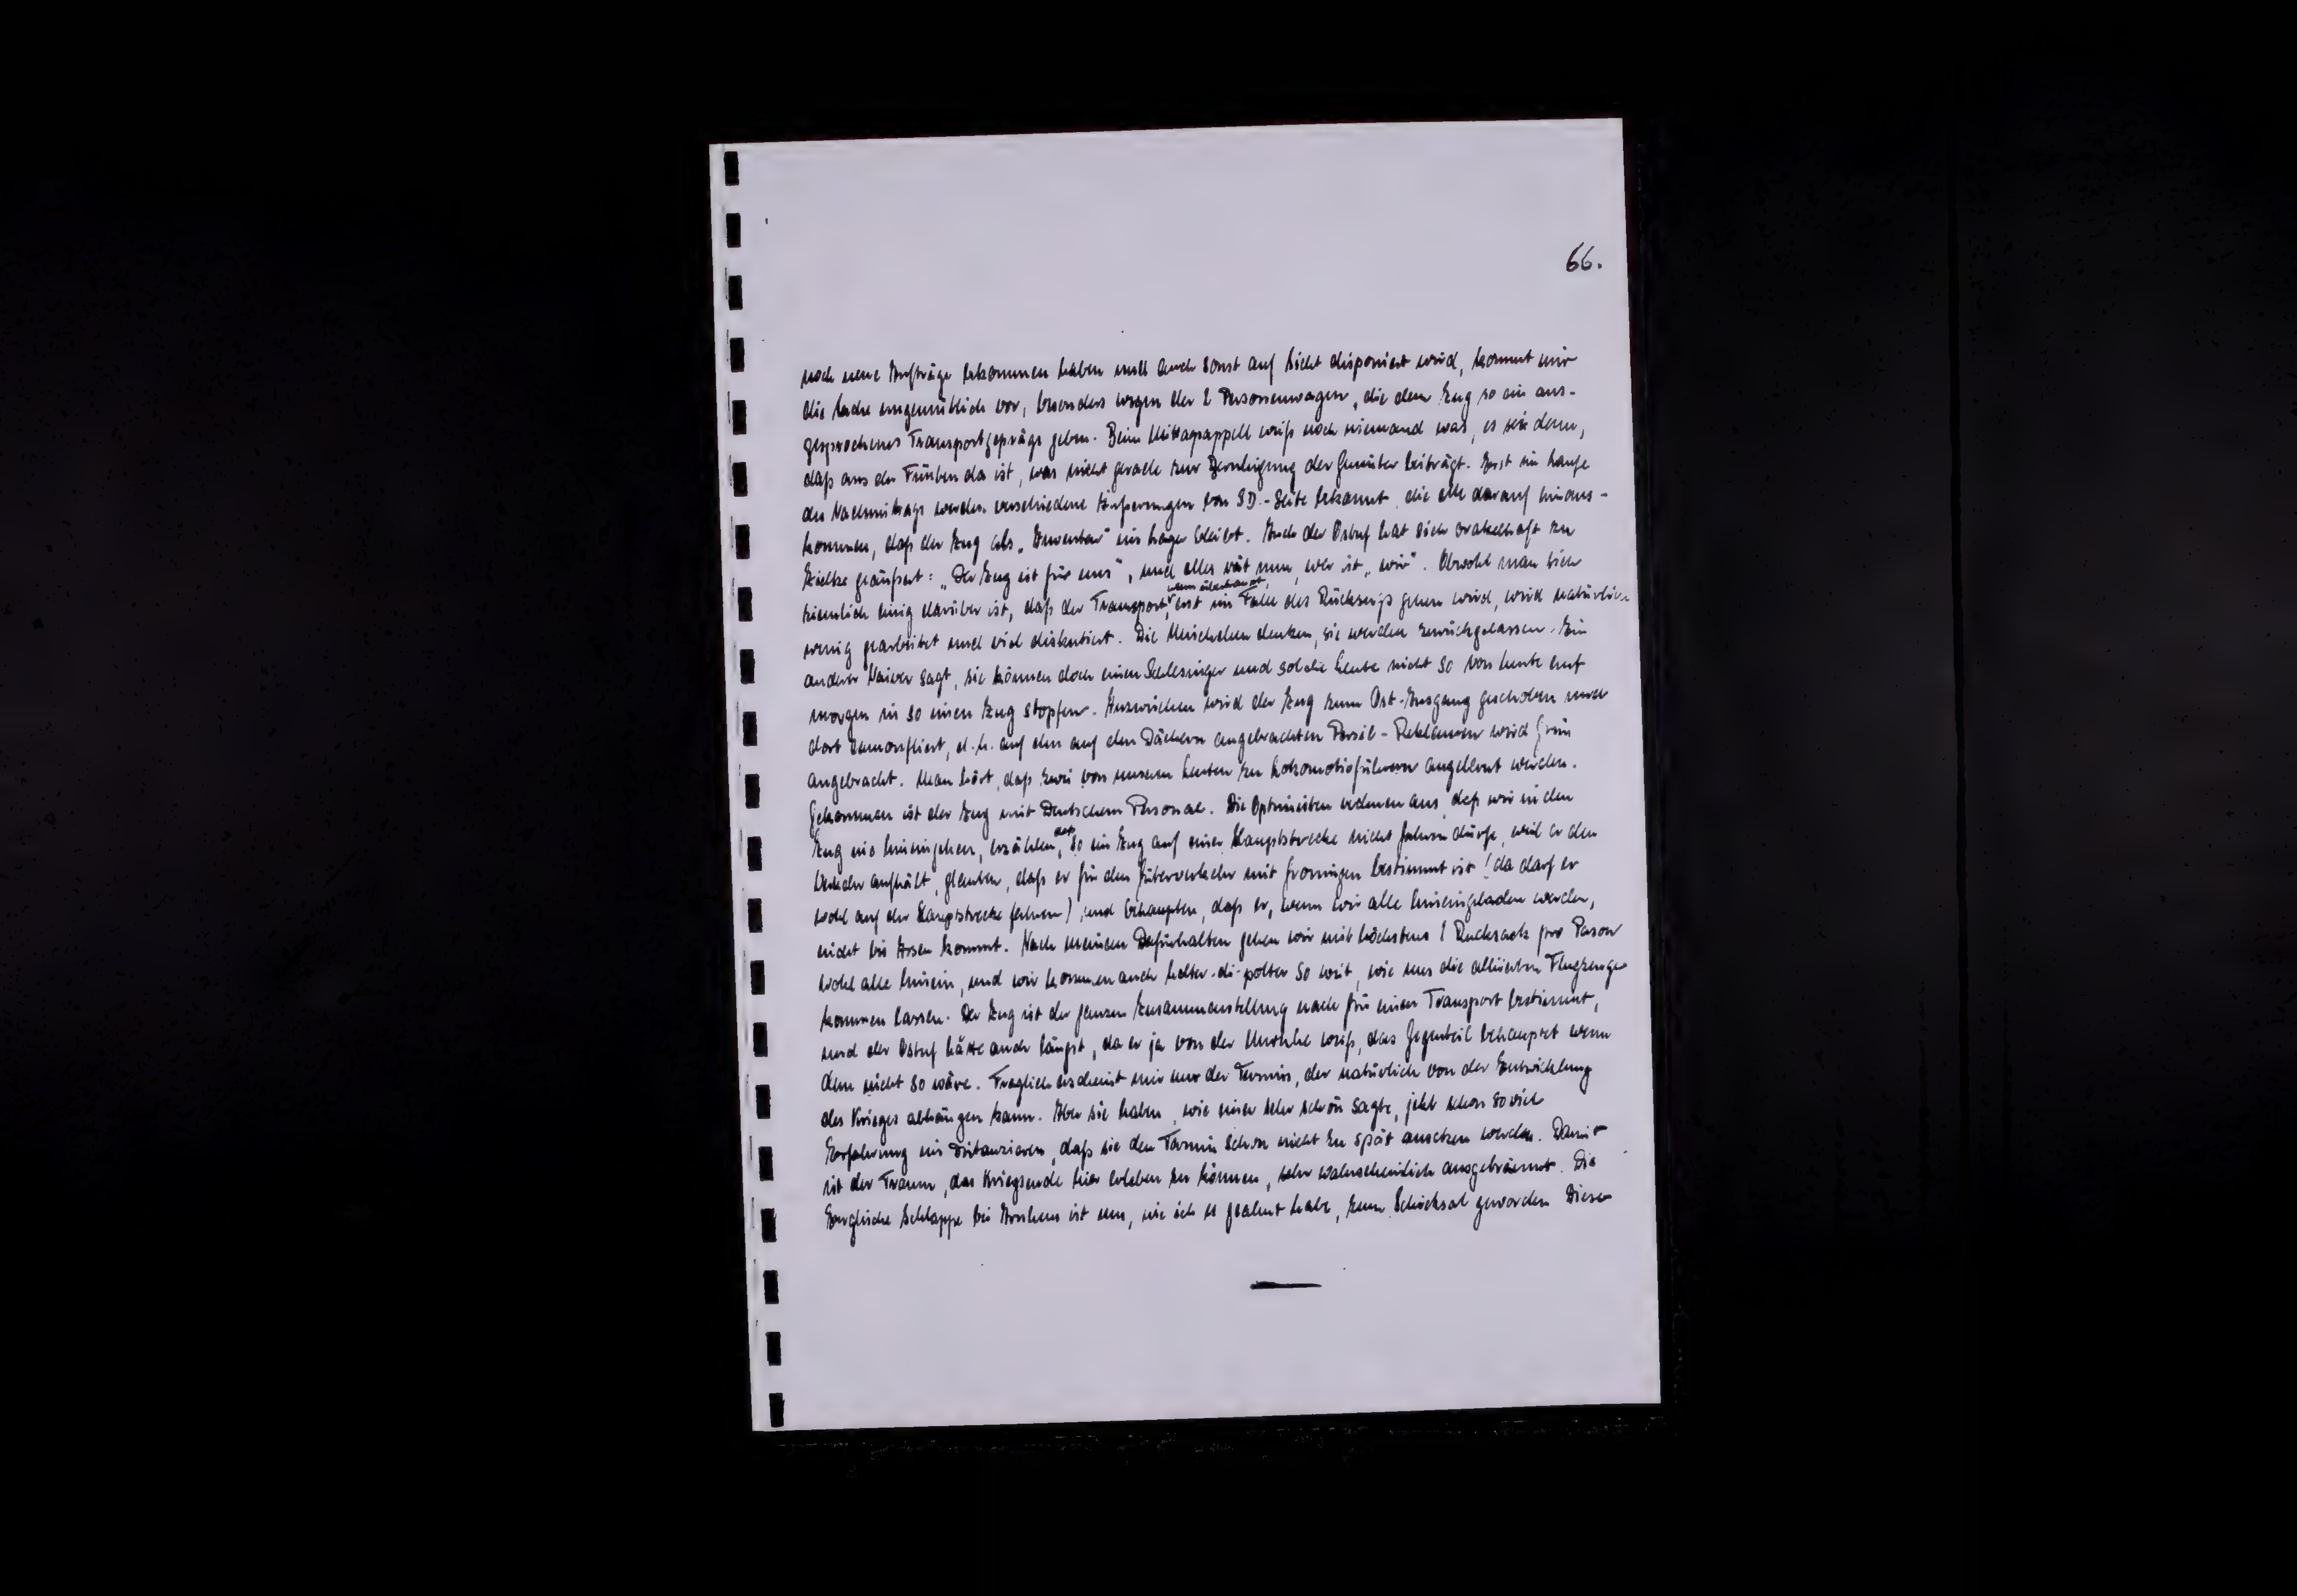 66.
noch neue Aufträge bekommen haben und auch sonst auf Sicht disponiert wird, kommt mir
die Sache ungemütlich vor, besonders wegen der 2 Personenwagen, die dem Zug so ein aus-
gesprochenes Transportgepräge geben. Beim Mittagsappell weiss noch niemand was, es sei denn,
daß aus der Fünten da ist, was nicht gerade zur Beruhigung der Gemüter beiträgt. Erst im Laufe
des Nachmittags werden verschiedene Äußerungen von SD.-Seite bekannt die alle darauf hinaus-
kommen, daß der Zug als „Inventar" im Lager bleibt. Auch der Ostuf hat sich orakelhaft zu
geäußert: „Der Zug ist für uns", und alles rät nun, wer ist „wir". Obwohl man sich
ziemlich einig darüber ist, daß der Transport, wenn überhaupt, erst im Falle des Rückzugs gehen wird, wird natürlich
wenig gearbeitet und viel diskutiert. Die Mischehen denken, sie werden zurückgelassen. Ein
anderer Naiver sagt, sie können doch einen Schlesinger und solche Leute nicht so von heute auf
morgen in so einen Zug stopfen. Inzwischen wird der Zug zum Ost-Ausgang geschoben und
dort camoufliert, d.h. auf den auf den Dächern angebrachten Persil-Reklamen wird Grün
angebracht. Man hört, daß zwei von unseren Leuten zu Lokomotivführern angelernt werden.
Gekommen ist der Zug mit Deutschem Personal. Die Optimisten rechnen aus, daß wir in den
Zug nie hineingehen, erzählen, daß so ein Zug auf einer Hauptstrecke nicht fahren dürfe, weil er den
Verkehr aufhält, glauben, daß er für den Güterverkehr mit Groningen bestimmt ist (da darf er
wohl auf der Hauptstrecke fahren) und behaupten, daß er, wenn wir alle hineingeladen werden,
nicht bis Assen kommt. Nach meinem Dafürhalten gehen wir mit höchstens 1 Rucksack pro Person
wohl alle hinein, und wir kommen auch holter-di-polter so weit, wie uns die alliierten Flugzeuge
kommen lassen. Der Zug ist der ganzen Zusammenstellung nach für einen Transport bestimmt,
und der Ostuf hätte auch längst, da er ja von der Unruhe weiß, das Gegenteil behauptet wenn
dem nicht so wäre. Fraglich erscheint mir nur der Termin, der natürlich von der Entwicklung
des Krieges abhängen kann. Aber sie haben, wie einer sehr schön sagte, jetzt schon soviel
Erfahrung im Distanzieren, daß sie den Termin schon nicht zu spät ansetzen werden. Damit
ist der Traum, das Kriegsende hier erleben zu können, sehr wahrscheinlich ausgeträumt. Die
Englische Schlappe bei Arnhem ist uns, wie ich es geahnt habe, zum Schicksal geworden Dieser